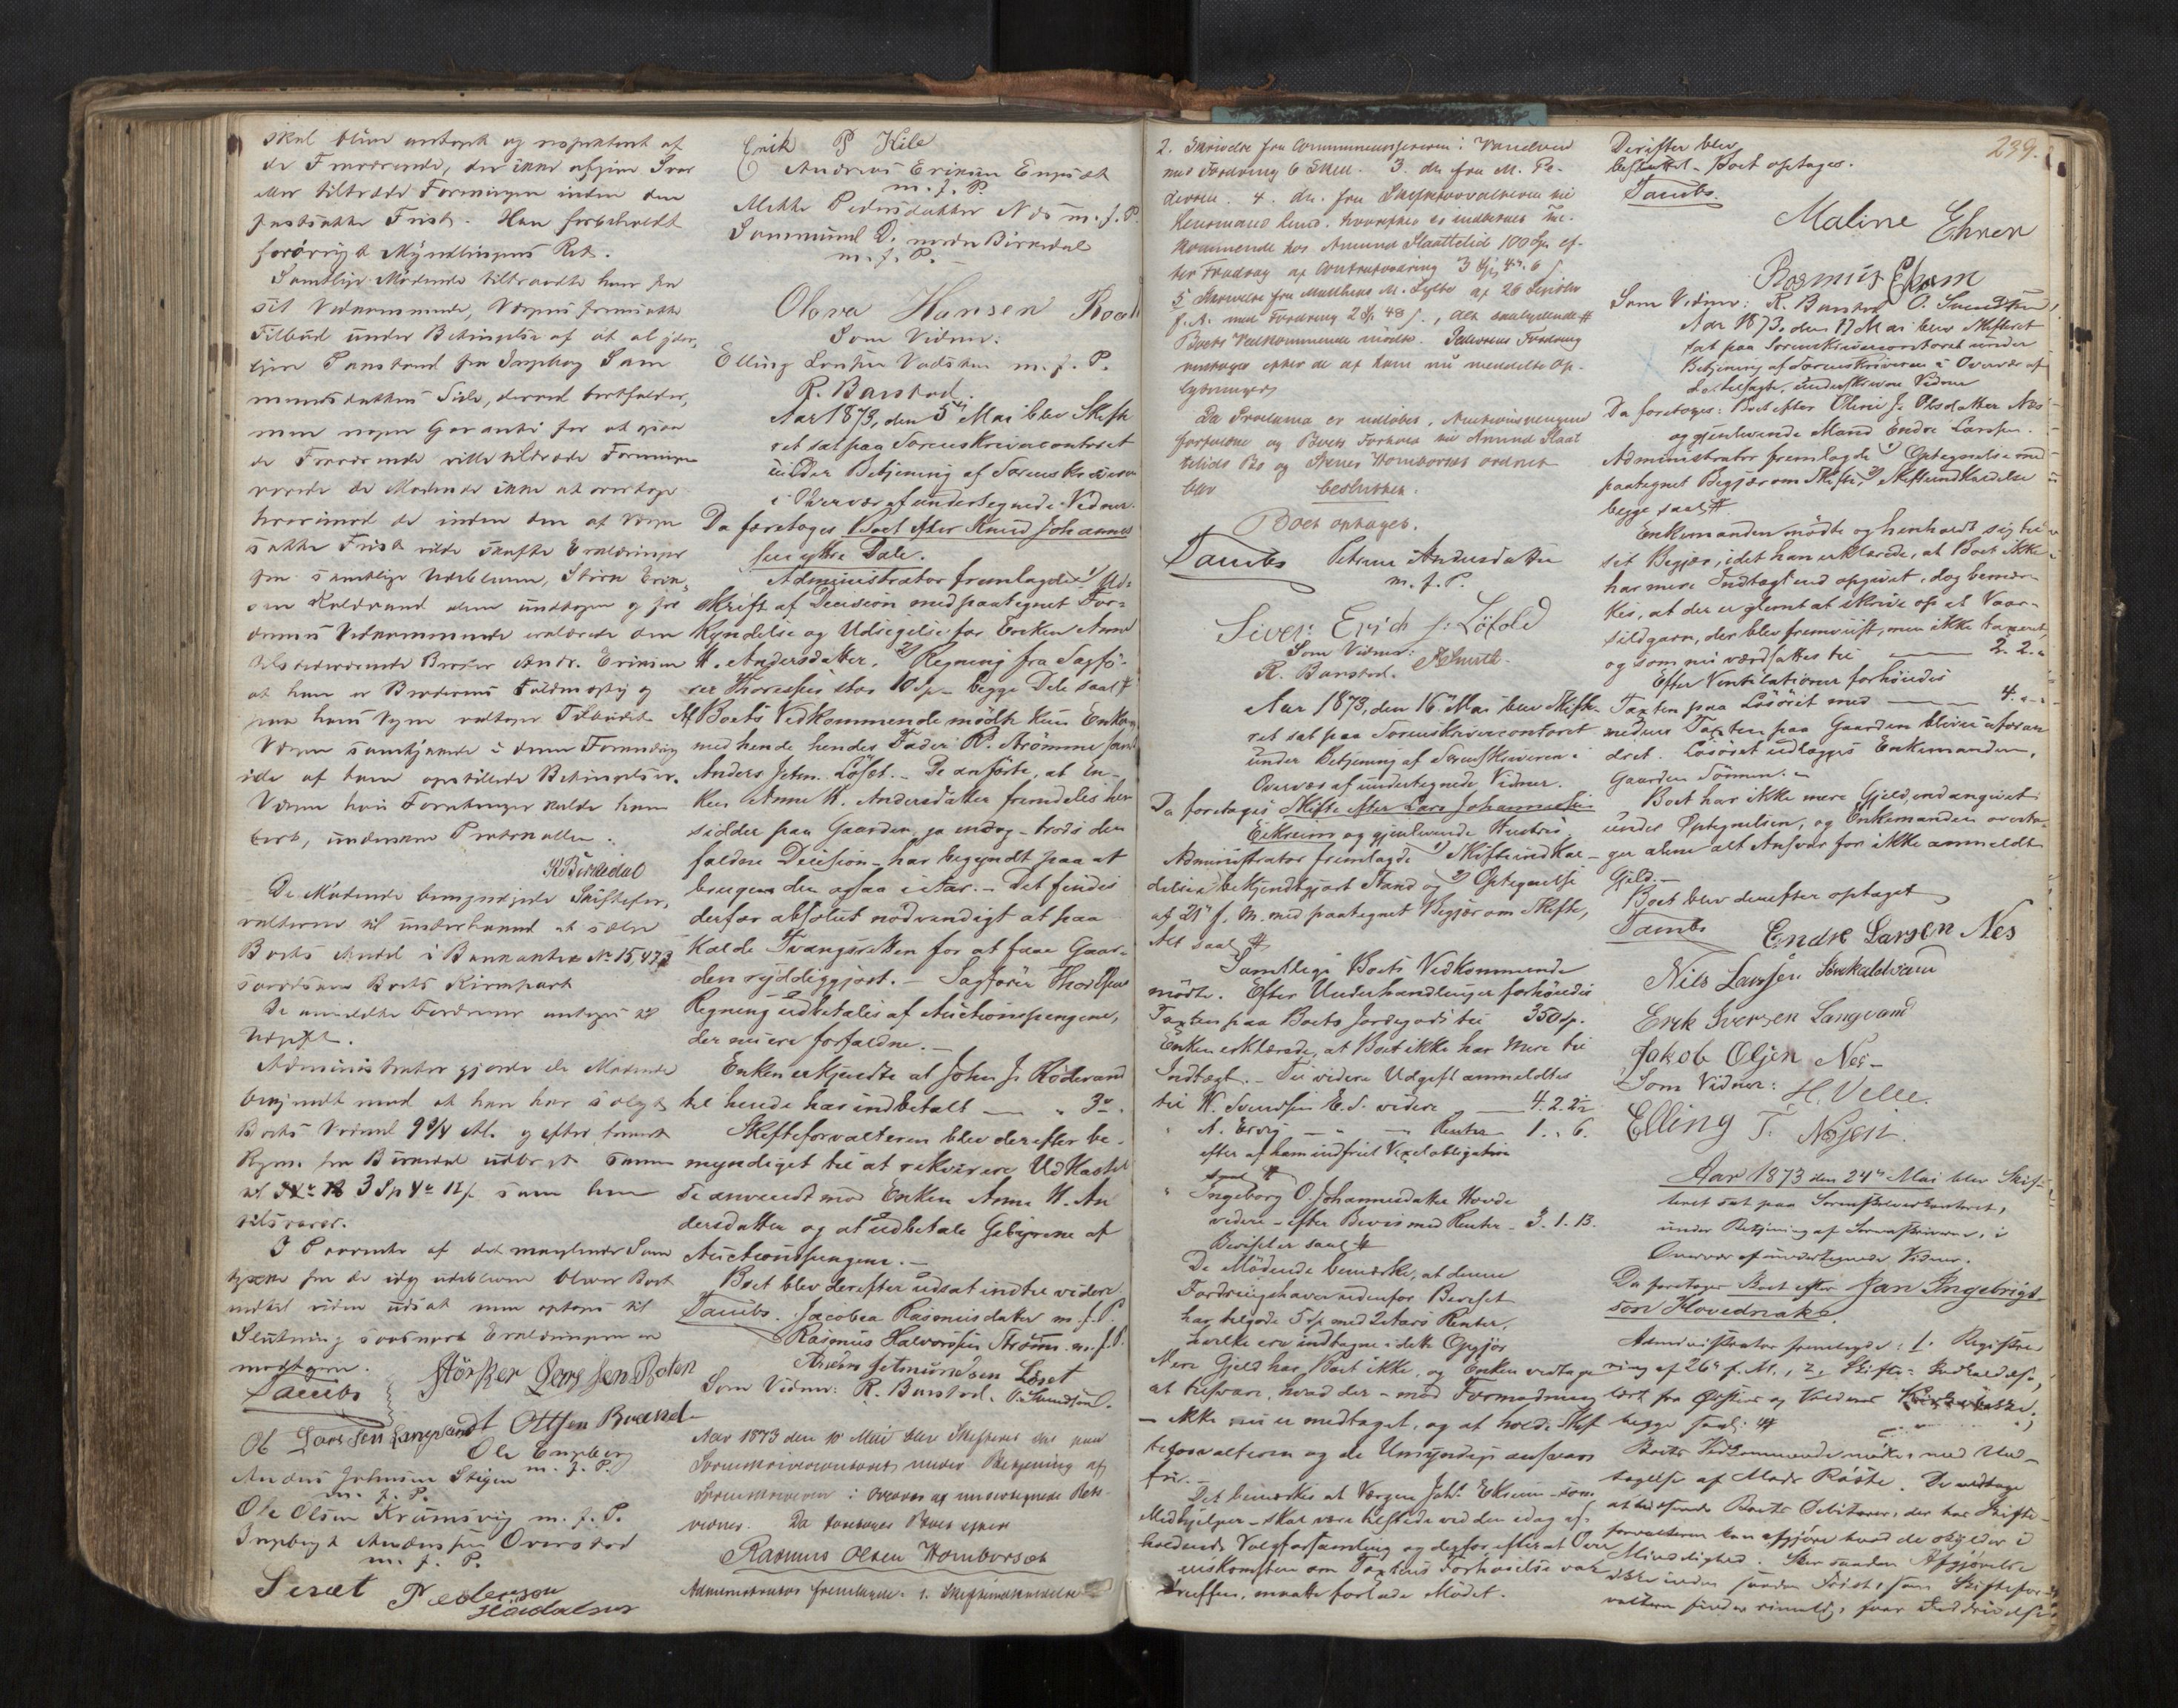 skal blive antaget og respekteret af
de Fraværende, der ikke afgive Svar
eller tiltræde Foreningen inden den
fastsatte Frist. Han forbeholdt
forøvrigt Myndlingens Ret.
Samtlige Mødende tiltraadte hver for
sit Vedkommende, Værgens fremsatte
Tilbud under Betingelse af at al yder
ligere Paastand fra Ingeborg Sam
mundsdatters Side, derved bortfalder,
men nogen Garanti for at give
de Fraværende ville tiltræde Foreningen
vovede de Mødende ikke at overtage
hvorimod de inden den af Værgen
satte Frist vilde skaffe Erklæringer
fra samtlige Udeblevne, Støren Erik
sen Kaldvand alene undtagen og for
dennes Vedkommende erklærede den
tilstedeværende Broder Andr. Eriksen
at han er Broderens Fuldmægtig og
paa hans Vegne vedtager Tilbudet
Værgen samtykkede i denne Forandring
i de af ham opstillede Betingelser.
Værgen hvis Forretninger kaldte ham
bort, underskrev Protokollen.
K Birkedal
De Mødende bemyndigede Skiftefor-
valteren til underhaand at sælge
Boets Andel i Bankaktie No 15,473
saavelsom Boets Kirkepart
De anmeldte Fordringer antages til
Udgift.
Administrator gjorde de Mødende
bekjendt med at han har solgt
Boets Vadmel 9 3/4 Al. og efter
Regn. fra Birkedal udbragt samme
til 3 Sp 4 12 s. som han
tilsvarer.
I Paavente af det manglende Sam
tykke fra de idag udeblevne bliver Boet
indtil videre udsat men optages til
Slutning saasnart Erklæringerne er
modtagne.
Daubs
Størker Larssen Roten
Ob Lars Sen Langvandt Ottsen Brand
Ole Engeberg
m. f. P.
Anders Johnsen Steffen
m. f. P.
Ole Olsen Kramsvig m. f. P.
Ingebrigt Anderssen Overstad
m. f. P.
Siret Pedersson
Hovdahsen
Erik P Kile
Andreas Eriksen Engeset
m. f. P.
Mette Pedersdatter Nes m. f. P.
Sammund D. nedre Birkedal
m. f. P.
Olava Hansen Roal
Som Vidner:
Elling Larsen Vadsten m. f. P.
R. Barstad.
Aar 1873, den 5te Mai blev Skifte
ret sat paa Sorenskrivercontoret
under Betjening af Sorenskriveren
i Overvær af undertegnede Vidner.
Da foretages Boet efter Knud Johannes
sen ytre Dale.
Administrator fremlagde 1) Ud-
skrift af Decision med paategnet For-
kyndelse og Udsigelse for Enken Anne
K. Andersdatter, 2) Regning fra Sagfø-
rer Thoresen stor 10 Sp – begge Dele saal #
Af Boets Vedkommende mødte kun Enken,
med hende hendes Fader R. Strømme samt
Anders Jetm. Løset. – De anførte, at En-
ken Anne K. Andersdatter fremdeles hen
sidder paa Gaarden, ja endog – trods den
faldne Decision – har begyndt paa at
bruge den ogsaa i Aar. – Det findes
derfor absolut nødvendigt at paa
kalde Tvangsretten for at faae Gaar-
den ryddiggjort. – Sagfører Thoresens
Regning udbetales af Auctionspengene,
der nu ere forfaldne. –
Enken erkjendte at John J. Rødevand
til hende har indbetalt — „ 3 „
Skifteforvalteren blev derefter be-
myndiget til at rekvirere Udkastel
se anvendt mod Enken Anne K. An
dersdatter og at udbetale Gebyrene af
Auctionspengene. –
Boet blev derefter udsat indtil videre
Daubs. Jacobea Rasmusdatter m. f. P.
Rasmus Halvorsen Strøm m. f. P.
Anders Jetmundsen Løset
Som Vidner: R. Barstad. O. Svendsen.
Aar 1873 den 10 Mai blev Skifteret sat paa
Sorenskrivercontoret under Betjening af
Sorenskriveren i Overvær af undertegnede Rets-
vidner. Da foretages Boet efter
Rasmus Olsen Homborset
Administrator fremlagde: 1. Skifteindkaldelse
2. Skrivelse fra Communecassereren i Vanelven
med Fordring 6 Skill. 3. do fra M. Pe-
dersen. 4. do. fra Skifteforvalteren til
Lensmand Lund. hvorefter er indbetalt til-
kommende hos Amund Slaattelid 100 Sp. ef-
ter Fradrag af Contrafordring 3 Sp, 4. 6 s.
5 Skrivelse fra Matthias M. Lylbo af 26 September
f. A. med Fordring 2 Sp. 48 s., Alt saalydende #
Boets Vedkommende mødte. Pedersens Fordring
vedtages efter de af ham nu meddelte Op-
lysninger
Da Proclama er udløbet, Auctionspengene
forfaldne og Boets Forhold til Amund Slaat
telids Bo og Stenes Homborset ordnet
blev besluttet.
Boet optages.
Daubs Petrine Andersdatter
m. f. P.
Siver Erich s: Løfold
Som Vidner:
R. Barstad. A Smith.
Aar 1873, den 16 Mai blev Skifte-
ret sat paa Sorenskrivercontoret
under Betjening af Sorenskriveren i
Overvær af undertegnede Vidner.
Da foretages Skifte efter Lars Johannessen
Eikreim og gjenlevende Hustru
Administrator fremlagde 1) Skifteindkal-
delse i bekjendtgjort Stand og 2) Optegnelse
af 21 f. M. med paategnet Begjær om Skifte,
Alt saal #
Samtlige Boets Vedkommende
mødte. Efter Underhandlinger forhøiedes
Taxten paa Boets Jordegods til 350 sp.
Enken erklærede, at Boet ikke har mere til
Indtægt. – Til videre Udgift anmeldtes
til K. Svendsen E. S. videre — 4. 2. 2 1/2
„ A. Ervig — „ — Renter 1. „ 6.
efter af ham indfriet Vexelobligation
saal #
„ Ingeborg O. Johannesdatter Hovde
videre – efter Bevis med Renter – 3. 1. 13.
Beviset er saal #
De Mødende bemærke, at denne
Fordringshaver udenfor Beviset
har tilgode 5 sp med 2 Aars Renter,
hvilke ere indtagne i dette Opgjør
Mere Gjeld har Boet ikke, og Enken vedtager
at tilsvare, hvad der – mod Formodning
– ikke nu er medtaget, og at holde Skif
teforvalteren og de Umyndige ansvars
frie.
Det bemærkes at Værgen Johs Ekreim – som
Medhjelper – skal være tilstede ved den idag af-
holdende Valgforsamling og derfor efterat Over
eenskomsten om Taxtens Forhøielse var
truffen, maatte forlade Mødet.
Derefter blev
besluttet – Boet optages.
Daubs.
239.
Maline Ehren
Rasmus Eham
Som Vidner: R. Barstad O. Svendsen,
Aar 1873, den 17 Mai blev Skifteret
sat paa Sorenskrivercontoret under
Betjening af Sorenskriveren i Overvær af
de tilsagte, underskrevne Vidner
Da foretages: Boet efter Oline J. Olsdatter Nes
og gjenlevende Mand Endre Larsen.
Administrator fremlagde 1) Optegnelse med
paategnet Begjær om Skifte, 2) Skifteindkaldelse
begge saal #
Enkemanden mødte og henholdt sig til
sit Begjær, idet han erklærede, at Boet ikke
har mere Indtægt end opgivet, dog bemær-
kes, at der er glemt at skrive op et Vaar-
sildgarn, der blev fremviist, men ikke taxeret,
og som nu værdsattes til — 2. 2. „
Efter Ventilationer forhøiedes
Taxten paa Løsøret med — 4. „ „
medens Taxten paa Gaarden bliver uforan
dret. Løsøret udlægges Enkemanden,
Gaarden Sønnen. –
Boet har ikke mere Gjeld, end angivet
under Optegnelsen, og Enkemanden overta-
ger alene alt Ansvar for ikke anmeldt
Gjeld. –
Boet blev derefter optaget
Daubs Endre Larsen Nes
Nils Larsen Kaldvand
Erik Iversen Langvand
Jakob Olsen Nes –
Som Vidner: H. Velle.
Elling T. Nøsen.
Aar 1873 den 24 Mai blev Skif-
teret sat paa Sorenskriverkontoret,
under Betjening af Sorenskriveren, i
Overvær af undertegnede Vidner.
Da foretages Boet efter Jan Ingebrigt-
son Hovednake.
Administrator fremlagde: 1. Registre
ring af 26 f. M., 2, Skifte-Indkaldelse,
læst fra Ørstens og Voldens Kirkebakke;
begge saal: #
Boets Vedkommende mødte, med Und-
tagelse af Mads Raaste. De vedtage
at tilstaae Boets Debitorer, der hos Skifte-
forvalteren kan afgjøre hvad de skylder i
Mindelighed. Sker saadan Afgjørelse
ikke inden saadan Frist, som Skiftefor-
valteren finder rimelig, faar Inddrivelse